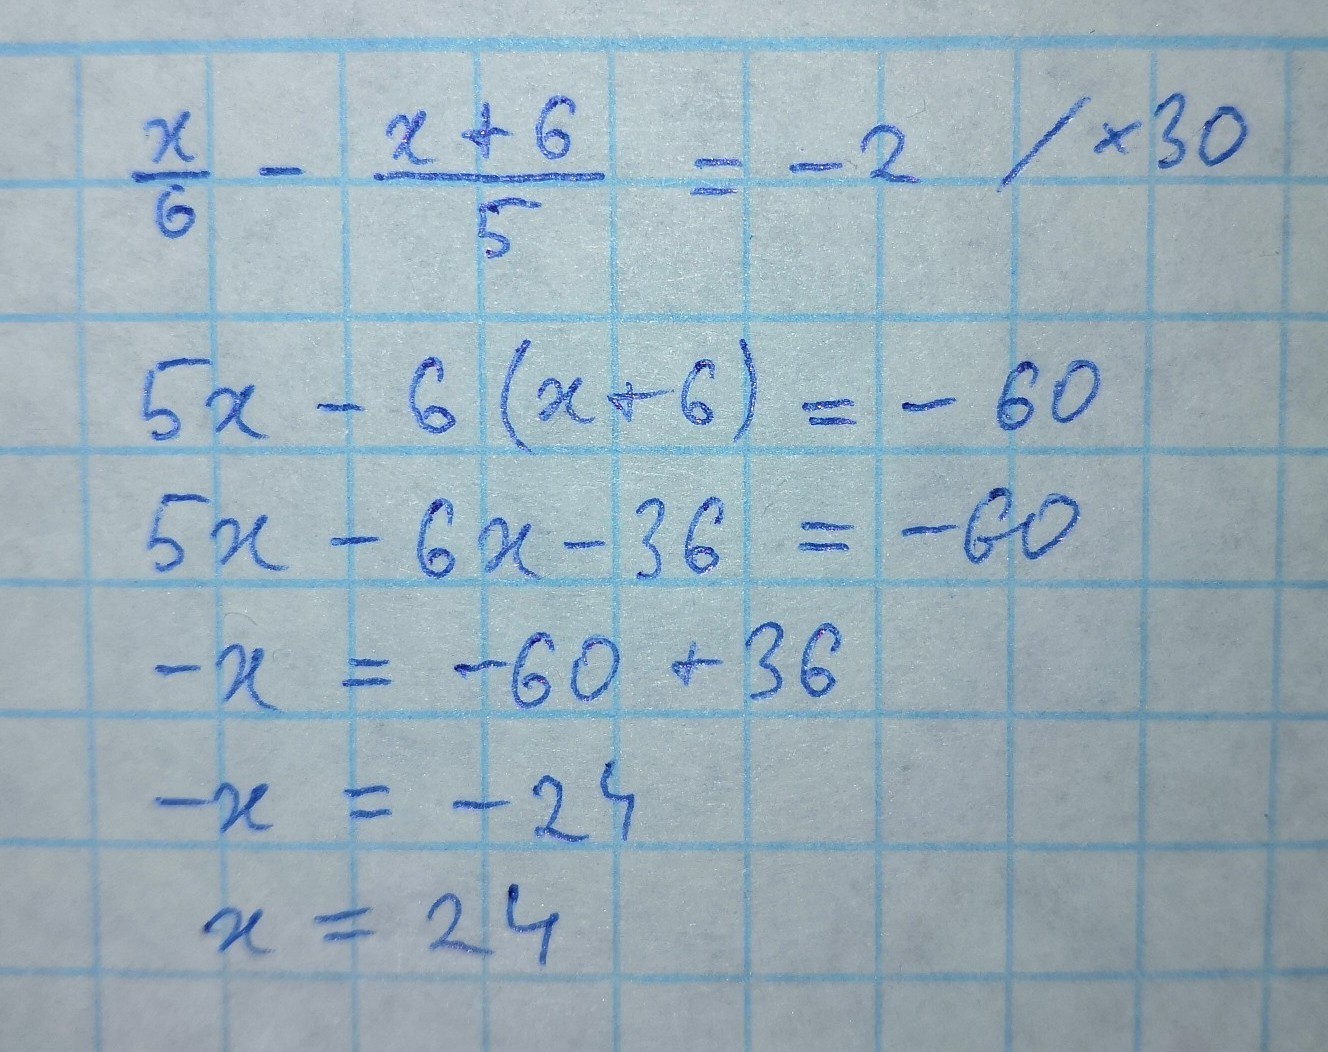 x/6 - (x+6)/5 = -2 / ×30
5x - 6(x+6) = -60
5x - 6x - 36 = -60
-x = -60 + 36
-x = -24
x = 24